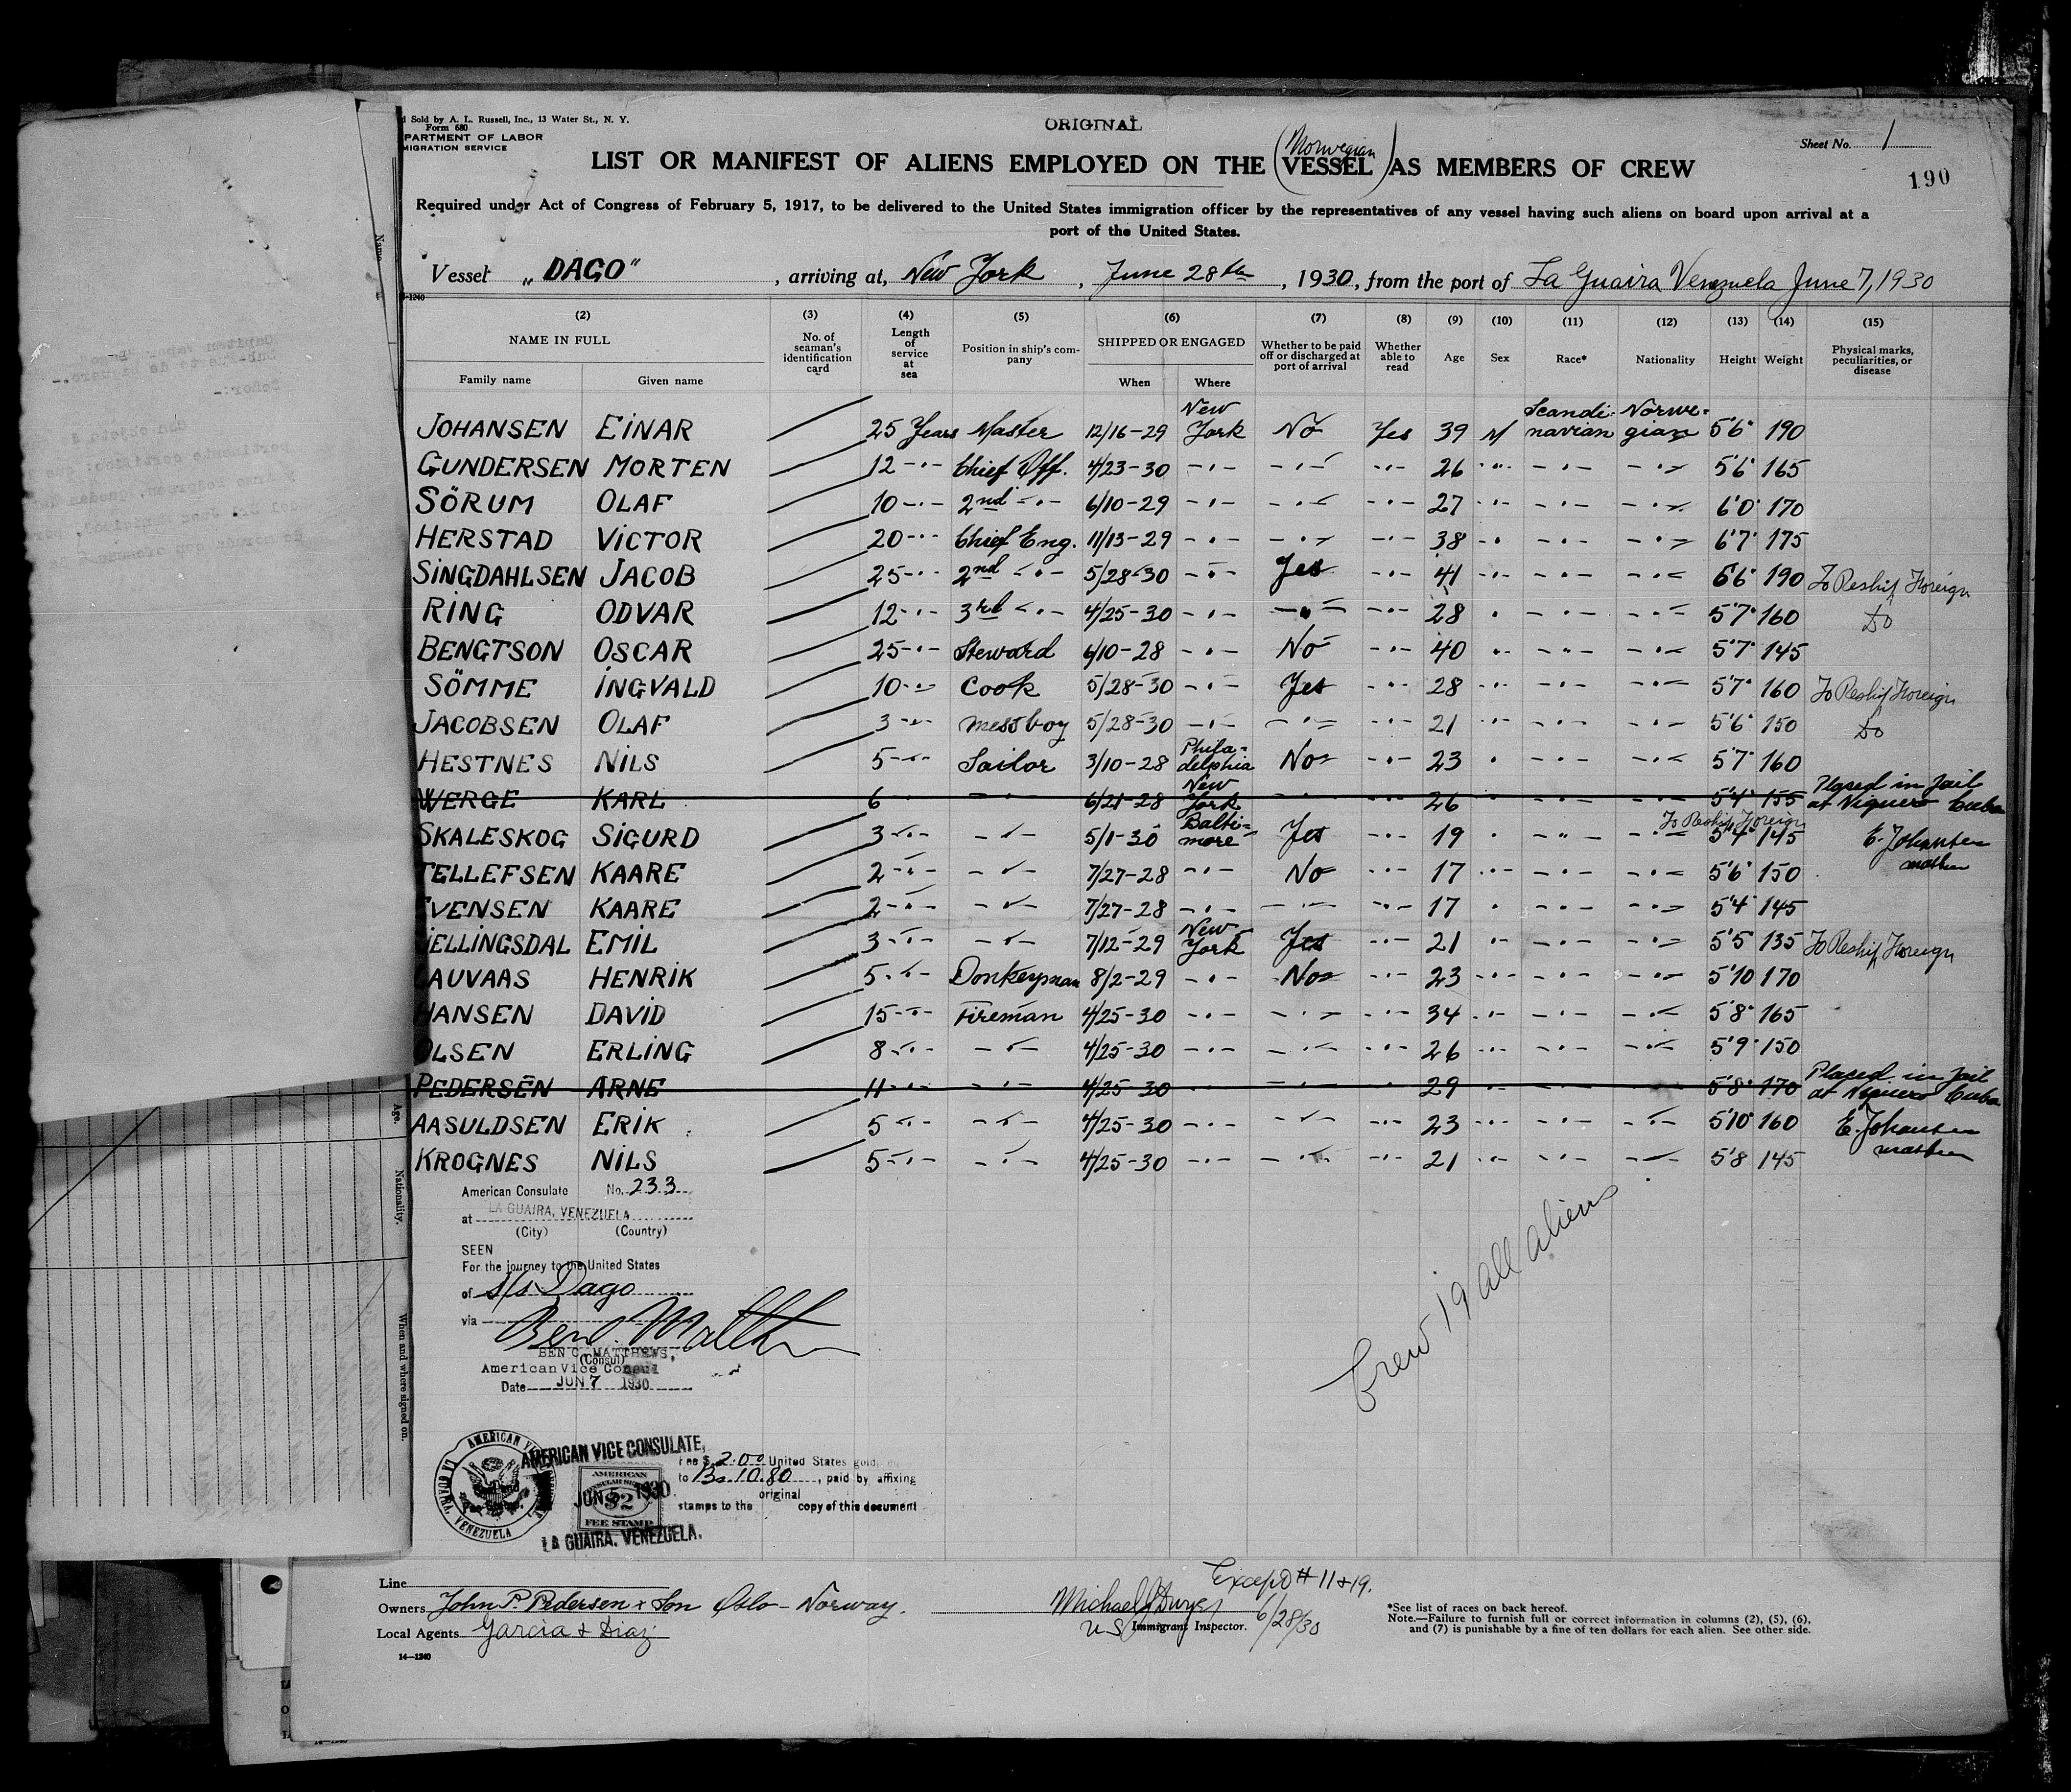 d Sold by A. L. Russell, Inc., 13 Water St., N. Y.
Form 680
PARTMENT OF LABOR
MIGRATION SERVICE
ORIGINAL
Sheet No. 1
190
Norwegian
LIST OR MANIFEST OF ALIENS EMPLOYED ON THE (VESSEL) AS MEMBERS OF CREW
Required under Act of Congress of February 5, 1917, to be delivered to the United States immigration officer by the representatives of any vessel having such aliens on board upon arrival at a
port of the United States.
Vessel „DAGO", arriving at, New York, June 28th, 1930, from the port of La Guaira Venezuela June 7, 1930
(2) (3) (4) (5) (6) (7) (8) (9) (10) (11) (12) (13) (14) (15)
NAME IN FULL No. of seaman's identification card Length of service at sea Position in ship's company SHIPPED OR ENGAGED Whether to be paid off or discharged at port of arrival Whether able to read Age Sex Race* Nationality Height Weight Physical marks, peculiarities, or disease
Family name Given name When Where
JOHANSEN EINAR 25 Years Master 12/16-29 New York No Yes 39 M Scandinavian Norwegian 5'6" 190
GUNDERSEN MORTEN 12 -"- Chief Off. 4/23-30 -"- -"- -"- 26 -"- -"- -"- 5'6" 165
SÖRUM OLAF 10 -"- 2nd -"- 6/10-29 -"- -"- -"- 27 -"- -"- -"- 6'0" 170
HERSTAD VICTOR 20 -"- Chief Eng. 11/13-29 -"- -"- -"- 38 -"- -"- -"- 6'7" 175
SINGDAHLSEN JACOB 25 -"- 2nd -"- 5/28-30 -"- Yes -"- 41 -"- -"- -"- 6'6" 190 To Reship Foreign
RING ODVAR 12 -"- 3rd -"- 4/25-30 -"- -"- -"- 28 " -"- -"- 5'7" 160 Do
BENGTSON OSCAR 25 -"- Steward 6/10-28 -"- No -"- 40 -"- -"- -"- 5'7" 145
SÖMME INGVALD 10 -"- Cook 5/28-30 -"- Yes -"- 28 -"- -"- -"- 5'7" 160 To Reship Foreign
JACOBSEN OLAF 3 -"- Messboy 5/28-30 -"- -"- -"- 21 -"- -"- -"- 5'6" 150 Do
HESTNES NILS 5 -"- Sailor 3/10-28 Philadelphia No -"- 23 " -"- -"- 5'7" 160
WERGE KARL 6 -"- -"- 6/21-28 New York -"- -"- 26 -"- -"- -"- 5'4" 155 Placed in Jail at Niquero Cuba
SKALESKOG SIGURD 3 -"- -"- 5/1-30 Baltimore Yes -"- 19 " -"- -"- 5'4" 145 To Reship Foreign E. Johansen master
TELLEFSEN KAARE 2 -"- -"- 7/27-28 -"- No -"- 17 -"- -"- -"- 5'6" 150
VENSEN KAARE 2 -"- -"- 7/27-28 -"- -"- -"- 17 " -"- -"- 5'4" 145
JELLINGSDAL EMIL 3 -"- -"- 7/12-29 New York Yes -"- 21 -"- -"- -"- 5'5 135 To Reship Foreign
AUVAAS HENRIK 5 -"- Donkeyman 8/2-29 -"- No -"- 23 -"- -"- -"- 5'10 170
HANSEN DAVID 15 -"- Fireman 4/25-30 -"- -"- -"- 34 -"- -"- -"- 5'8" 165
OLSEN ERLING 8 -"- -"- 4/25-30 -"- -"- -"- 26 -"- -"- -"- 5'9" 150
PEDERSEN ARNE 11 -"- -"- 4/25-30 -"- -"- -"- 29 -"- -"- -"- 5'8" 170 Placed in Jail at Niquero Cuba
AASULDSEN ERIK 5 -"- -"- 4/25-30 -"- -"- -"- 23 -"- -"- -"- 5'10" 160 E. Johansen master
KROGNES NILS 5 -"- -"- 4/25-30 -"- -"- -"- 21 -"- -"- -"- 5'8 145
American Consulate No. 233
at LA GUAIRA, VENEZUELA
(City) (Country)
SEEN
For the journey to the United States
of s/s Dago
via
BEN C. MATTHEWS,
(Consul)
American Vice Consul
Date JUN 7 1930
Crew 19 all aliens
AMERICAN VICE CONSULATE,
LA GUAIRA, VENEZUELA
AMERICAN
$2
FEE STAMP
JUN 1930
LA GUAIRA, VENEZUELA.
Fee $ 2.00 United States gold,
to Bs. 10.80, paid by affixing
original
stamps to the copy of this document
Line
Owners John P. Pedersen & Son Oslo - Norway.
Local Agents Garcia & Diaz
14—1240
Except # 11 & 19.
Michael J Dwyer 6/28/30
US Immigrant Inspector.
*See list of races on back hereof.
Note.—Failure to furnish full or correct information in columns (2), (5), (6),
and (7) is punishable by a fine of ten dollars for each alien. See other side.
Name
Age.
Nationality.
When and where signed on.